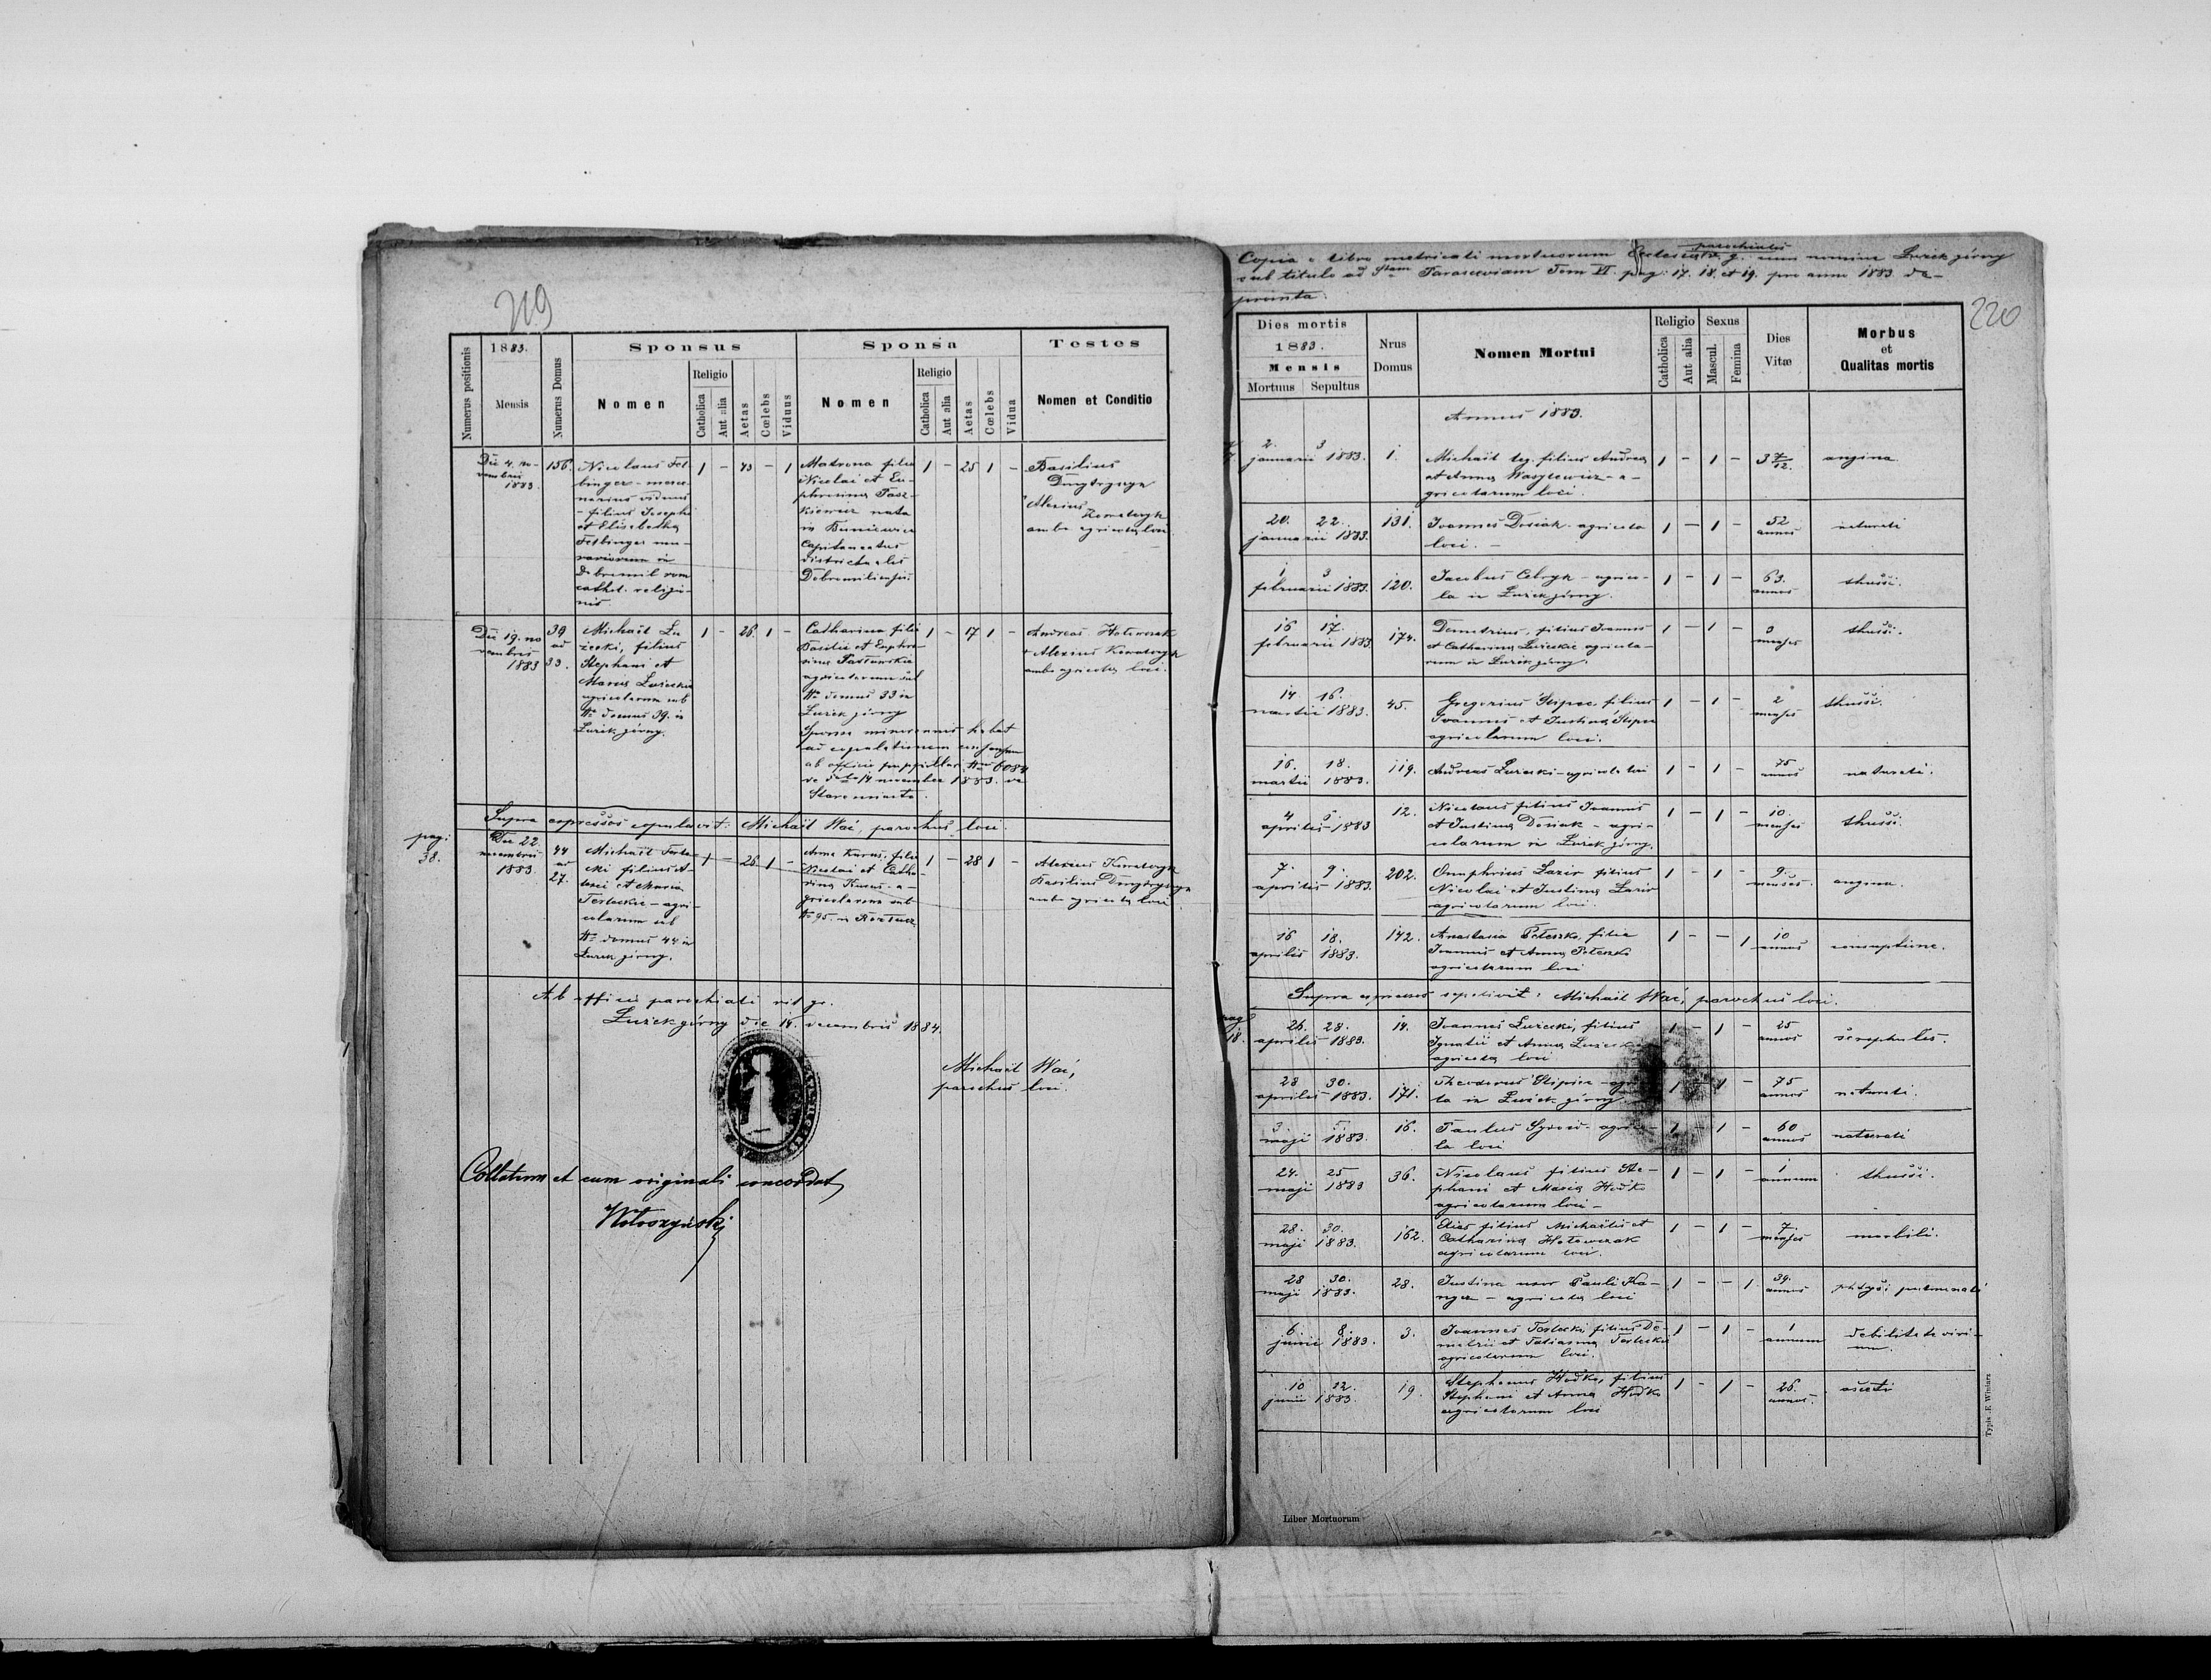 219
Numerus positionis
1883.
Mensis
Numerus Domus
Sponsus
Nomen
Religio
Catholica
Aut alia
Aetas
Cœlebs
Viduus
Sponsa
Nomen
Religio
Catholica
Aut alia
Aetas
Cœlebs
Vidua
Testes
Nomen et Conditio
Die 4. no-
vembris
1883.
156.
Nicolaus Fel-
binger - merce-
narius viduus
- filius Josephi
et Elisabetha
Felbinger mu-
rariorum in
Dobromil rom
cathol. religio-
nis
1 - 43 - 1
Matrona filia
Nicolai et Eu-
phrosina Pasz-
kiewicz nata
in
Capitaneatus
districtualis
Dobromiliensis
1 - 25 1 -
Basilius
Dmytryszyn
Alexius
ambo agricolæ loci.
Die 19. no
vembris
1883
39
ad
33.
Michael Łu
żecki, filius
Stephani et
Maria Łużeckie
agricolarum sub
Nro domus 39. in
Łużek górny.
1 - 26. 1 -
Catharina filia
Basilii et Euphro-
sina
agricolarum sub
Nro domus 33 in
Łużek górny
Sponsa minorennis habet
ad copulationem
ab officio puppillar. Nro 6084
de dato 14 novembris 1883. in
Staremiasto.
1 - 17 1 -
Andreas Hołowczak
+ Alexius
ambo agricolæ loci.
Supra expressos copulavit: Michael Wać, parochus loci.
pag:
38.
Die 22
novembris
1883.
44
ad
27.
Michael Terle-
cki filius A-
lexii et Maria
Terleckie - agri-
colarum sub
Nro domus 44 in
Łużek górny.
1 - 26 1 -
Anna Kurus, filia
Nicolai et Catha-
rina Kurus - a-
gricolarum sub
Nro 95. in
1 - 28 1 -
Alexius
Basilius Dmytryszyn
ambo agricolæ loci
Ab officio parochiali rit. gr.
Łużek górny die 14. decembris 1884.
Michael Wać,
parochus loci.
Collatum et cum originali concordat
Wołoszyński
Copia e libro metricali mortuorum Ecclesiæ parochialis r. g. cum nomine Łużek górny
sub titulo ad Stam Parasceviam Tom VI. pag: 17. 18. et 19. pro anno 1883. de-
prompta.
220
Dies mortis
1883.
Mensis
Mortuus
Sepultus
Nrus
Domus
Nomen Mortui
Religio
Catholica
Aut alia
Sexus
Mascul.
Femina
Dies
Vitæ
Morbus
et
Qualitas mortis
Annus 1883.
2. 3
januarii 1883. 1. Michael leg. filius Andrea
et Anna Wasylewicz - a-
gricolarum loci. 1 - 1 - angina
20. 22.
januarii 1883. 131. Joannes Dosiak - agricola
loci. - 1 - 1 - 52
annos naturali
1 3
februarii 1883. 120. Jacobus Cebryk - agrico-
la in Łużek górny. 1 - 1 - 63.
annos thussi.
16 17.
februarii 1883. 174. Demetrius, filius Joannis
et Catharina Łużeckie agricola-
rum in Łużek górny. 1 - 1 - 3
menses thussi.
14 16.
martii 1883. 45. Gregorius Slipec filius
Joannis et Justina Slipec
agricolarum loci. 1 - 1 - 2
menses thussi.
16. 18.
martii 1883. 119. Andreas Łużecki - agricola loci 1 - 1 - 75
annos naturali.
4 5
aprilis 1883 12. Nicolaus filius Joannis
et Justina Dosiak - agri-
colarum in Łużek górny. 1 - 1 - 10.
menses thussi.
7. 9.
aprilis 1883. 202. Onuphrius Lazir filius
Nicolai et Justina Lazir
agricolarum loci. 1 - 1 - 9.
menses. angina.
16 18.
aprilis 1883. 142. Anastasia Peleszko, filia
Joannis et Anna
agricolarum loci 1 - - 1 10
annos consuptione.
Supra expressos sepelivit: Michael Wać, parochus loci.
pag
18.
26. 28.
aprilis 1883. 14. Joannes Łużecki, filius
Ignatii et Anna
agricola loci. 1 - 1 - 25
annos
28 30.
aprilis 1883. 171. Theodorus Slipec - agrico-
la in Łużek górny 1 - 1 - 75
annos naturali.
3 5.
maji 1883. 16. Paulus agrico-
la loci 1 - 1 - 60
annos naturali
24. 25
maji 1883 36. Nicolaus filius Ste-
phani et Maria Hodko
agricolarum loci - 1 - 1 - 1
annum thussi.
28. 30.
maji 1883. 162. Elias filius Michaelis et
Catharina Hołowczak
agricolarum loci. 1 - 1 - 7.
menses morbili.
28 30.
maji 1883. 28. Justina uxor Pauli
- agricola loci 1 - - 1 39.
annos pulmonali
6 8.
junii 1883. 3. Joannes Terlecki filius De-
metrii et Tatianna Terleckie
agricolarum loci. 1 - 1 - 1
annum debilitate viri-
um.
10 12.
junii 1883. 19. Stephanus Hodko, filius
Stephani et Anna Hodko
agricolarum loci 1 - 1 - 26.
annos.
Typis . F. Winiarz
Liber Mortuorum